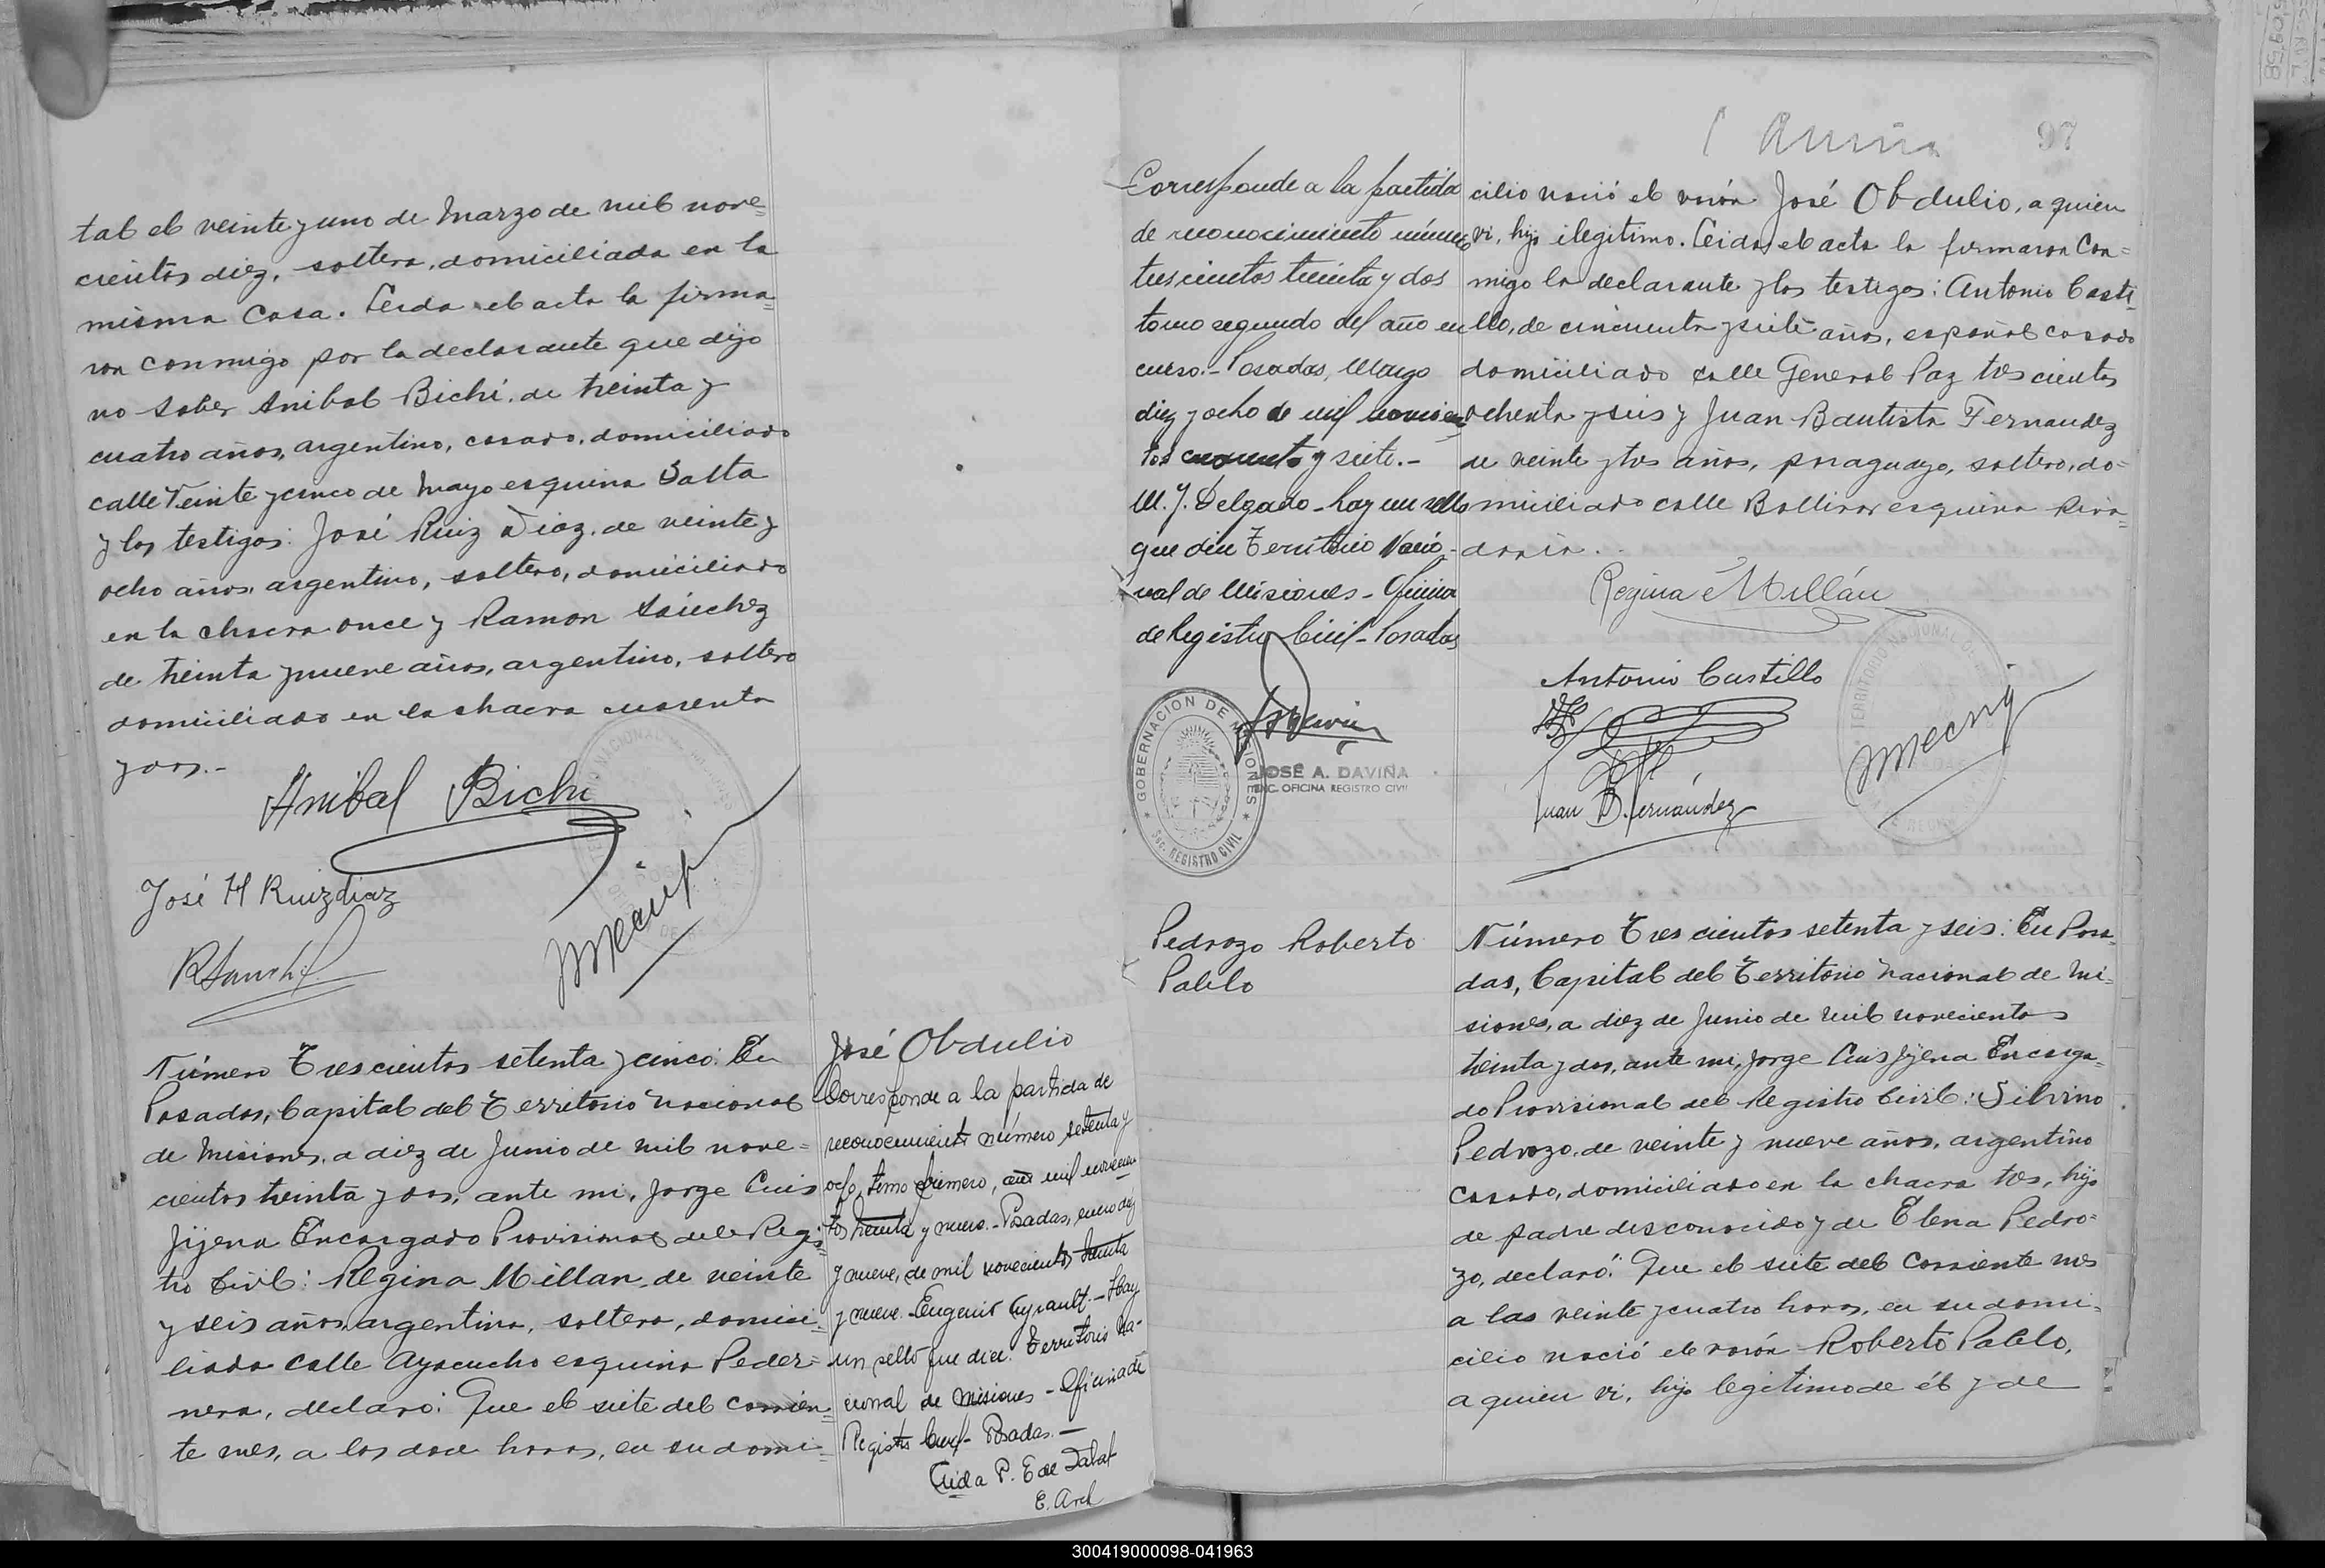 tal el veinte y uno de Marzo de mil nove=
cientos diez, soltera, domiciliada en la
misma Casa. Leida el acta la firma=
ron conmigo por la declarante que dijo
no saber Anibal Bichi, de treinta y
cuatro años, argentino, casado, domiciliado
calle Veinte y cinco de Mayo esquina Salta
y los testigos: José Ruiz Diaz, de veinte y
ocho años, argentino, soltero, domiciliado
en la chacra once y Ramon Sánchez
de treinta y nueve años, argentino, soltero
domiciliado en la chacra cuarenta
y dos.-
Anibal Bichi
José H Ruizdiaz
RSanch
Número Trescientos setenta y cinco: En
Posadas, Capital del Territorio Nacional
de Misiones, a diez de Junio de mil nove=
cientos treinta y dos, ante mi, Jorge Luis
Jijena Encargado Provisional del Regis=
tro Civil: Regina Millan, de veinte
y seis años, argentina, soltera, domici=
liada calle Ayacucho esquina Peder=
nera, declaró: Que el siete del corrien=
te mes, a las doce horas, en su domi=
José Obdulio
Corresponde a la partida de
reconocimiento número setenta y
ocho, tomo primero, año mil novecien
tos treinta y nueve.- Posadas, enero diez
y nueve, de mil novecientos treinta
y nueve. Eugenio Ayrault.- Hay
un sello que dice: Territorio Na-
cional de Misiones - Oficina de
Registro Civil - Posadas.-
P. E de
E.
97
Corresponde a la partida
de reconocimiento número
trescientos treinta y dos
tomo segundo del año en
curso.- Posadas, Mayo
diez y ocho de mil novecien=
tos cuarenta y siete.-
M. J. Delgado - hay un sello
que dice Territorio Nacio-
nal de Misiones - Oficina
de Registro Civil - Posadas
GOBERNACION DE MISIONES
Sec. REGISTRO CIVIL
JOSÉ A. DAVIÑA
ENC. OFICINA REGISTRO CIVIL
cilio nació el varón José Obdulio, a quien
vi, hijo ilegitimo. Leida el acta la firmaron Con=
migo la declarante y los testigos: Antonio Casti=
llo, de cincuenta y siete años, español casado
domiciliado calle General Paz trescientos
ochenta y seis y Juan Bautista Fernandez
de veinte y tres años, paraguayo, soltero, do=
miciliado calle Bollivar esquina Riva=
davia.
Regina Millán
Antonio Castillo
Juan B. Fernández
Pedrozo Roberto
Pablo
Número Trescientos setenta y seis: En Posa=
das, Capital del Territorio Nacional de Mi=
siones, a diez de Junio de mil novecientos
treinta y dos, ante mi, Jorge Luis Jijena Encarga=
do Provisional del Registro Civil: Silvino
Pedrozo, de veinte y nueve años, argentino
casado, domiciliado en la chacra tres, hijo
de padre desconocido y de Elena Pedro=
zo, declaró: Que el siete del corriente mes
a las veinte y cuatro horas, en su domi=
cilio nació el varón Roberto Pablo,
a quien vi, hijo legitimo de él y de
300419000098-041963